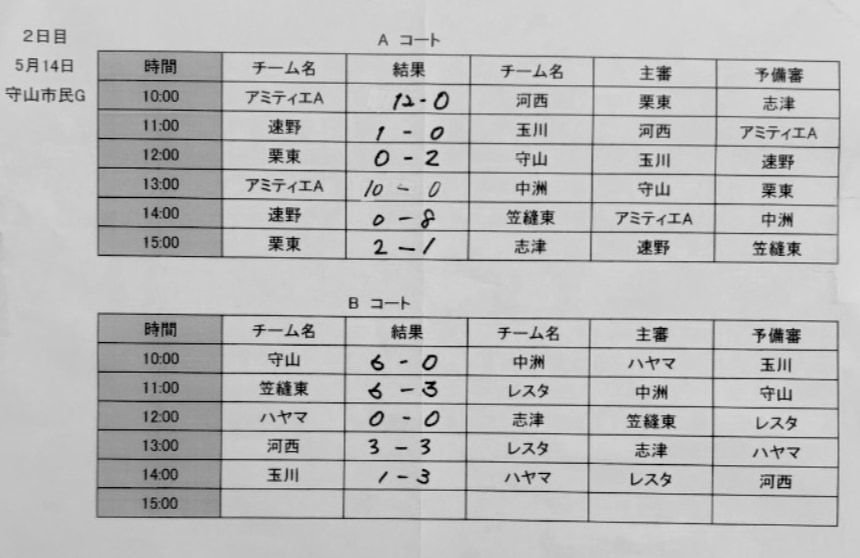 2日目
A コート
5月14日
守山市民G
時間 チーム名 結果 チーム名 主審 予備審
10:00 アミティエA 12-0 河西 栗東 志津
11:00 速野 1-0 玉川 河西 アミティエA
12:00 栗東 0-2 守山 玉川 速野
13:00 アミティエA 10-0 中洲 守山 栗東
14:00 速野 0-8 笠縫東 アミティエA 中洲
15:00 栗東 2-1 志津 速野 笠縫東
B コート
時間 チーム名 結果 チーム名 主審 予備審
10:00 守山 6-0 中洲 ハヤマ 玉川
11:00 笠縫東 6-3 レスタ 中洲 守山
12:00 ハヤマ 0-0 志津 笠縫東 レスタ
13:00 河西 3-3 レスタ 志津 ハヤマ
14:00 玉川 1-3 ハヤマ レスタ 河西
15:00